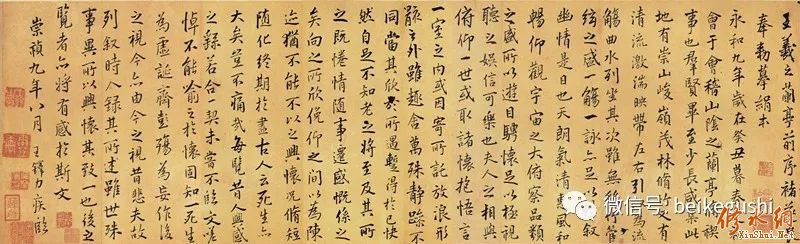 王羲之蘭亭前序褚
奉勅摹絹本
永和九年歲在癸丑暮春
會于會稽山陰之蘭亭 禊
事也羣賢畢至少長咸集此
地有崇山峻嶺茂林脩竹又有
清流激湍映帶左右引以為流
觴曲水列坐其次雖無
弦之盛一觴一詠亦足以 敘
幽情是日也天朗氣清惠風和
暢仰觀宇宙之大俯察品類
之盛所以遊目騁懷足以極視
聽之娛信可樂也夫人之相與
俯仰一世或取諸懷抱悟言
一室之內或因寄所託放浪形
骸之外雖趣舍萬殊靜躁不
同當其欣於所遇暫得於己快
然自足不知老之將至及其所
之既惓情隨事遷感慨係之
矣向之所欣俛仰之間以為陳
迹猶不能不以之興懷況脩短
隨化終期於盡古人云死生亦
大矣豈不痛哉每覽昔人興感
之由若合一契未嘗不臨文嗟
悼不能喻之於懷固知一死生
為虛誕齊彭殤為妄作後
之視今亦由今之視昔悲夫故
列敘時人錄其所述雖世殊
事異所以興懷其致一也後之
覽者亦將有感於斯文
崇禎九年八月 王鐸力疾臨
微信号: beikegushi
修水網
XiuShui.Net